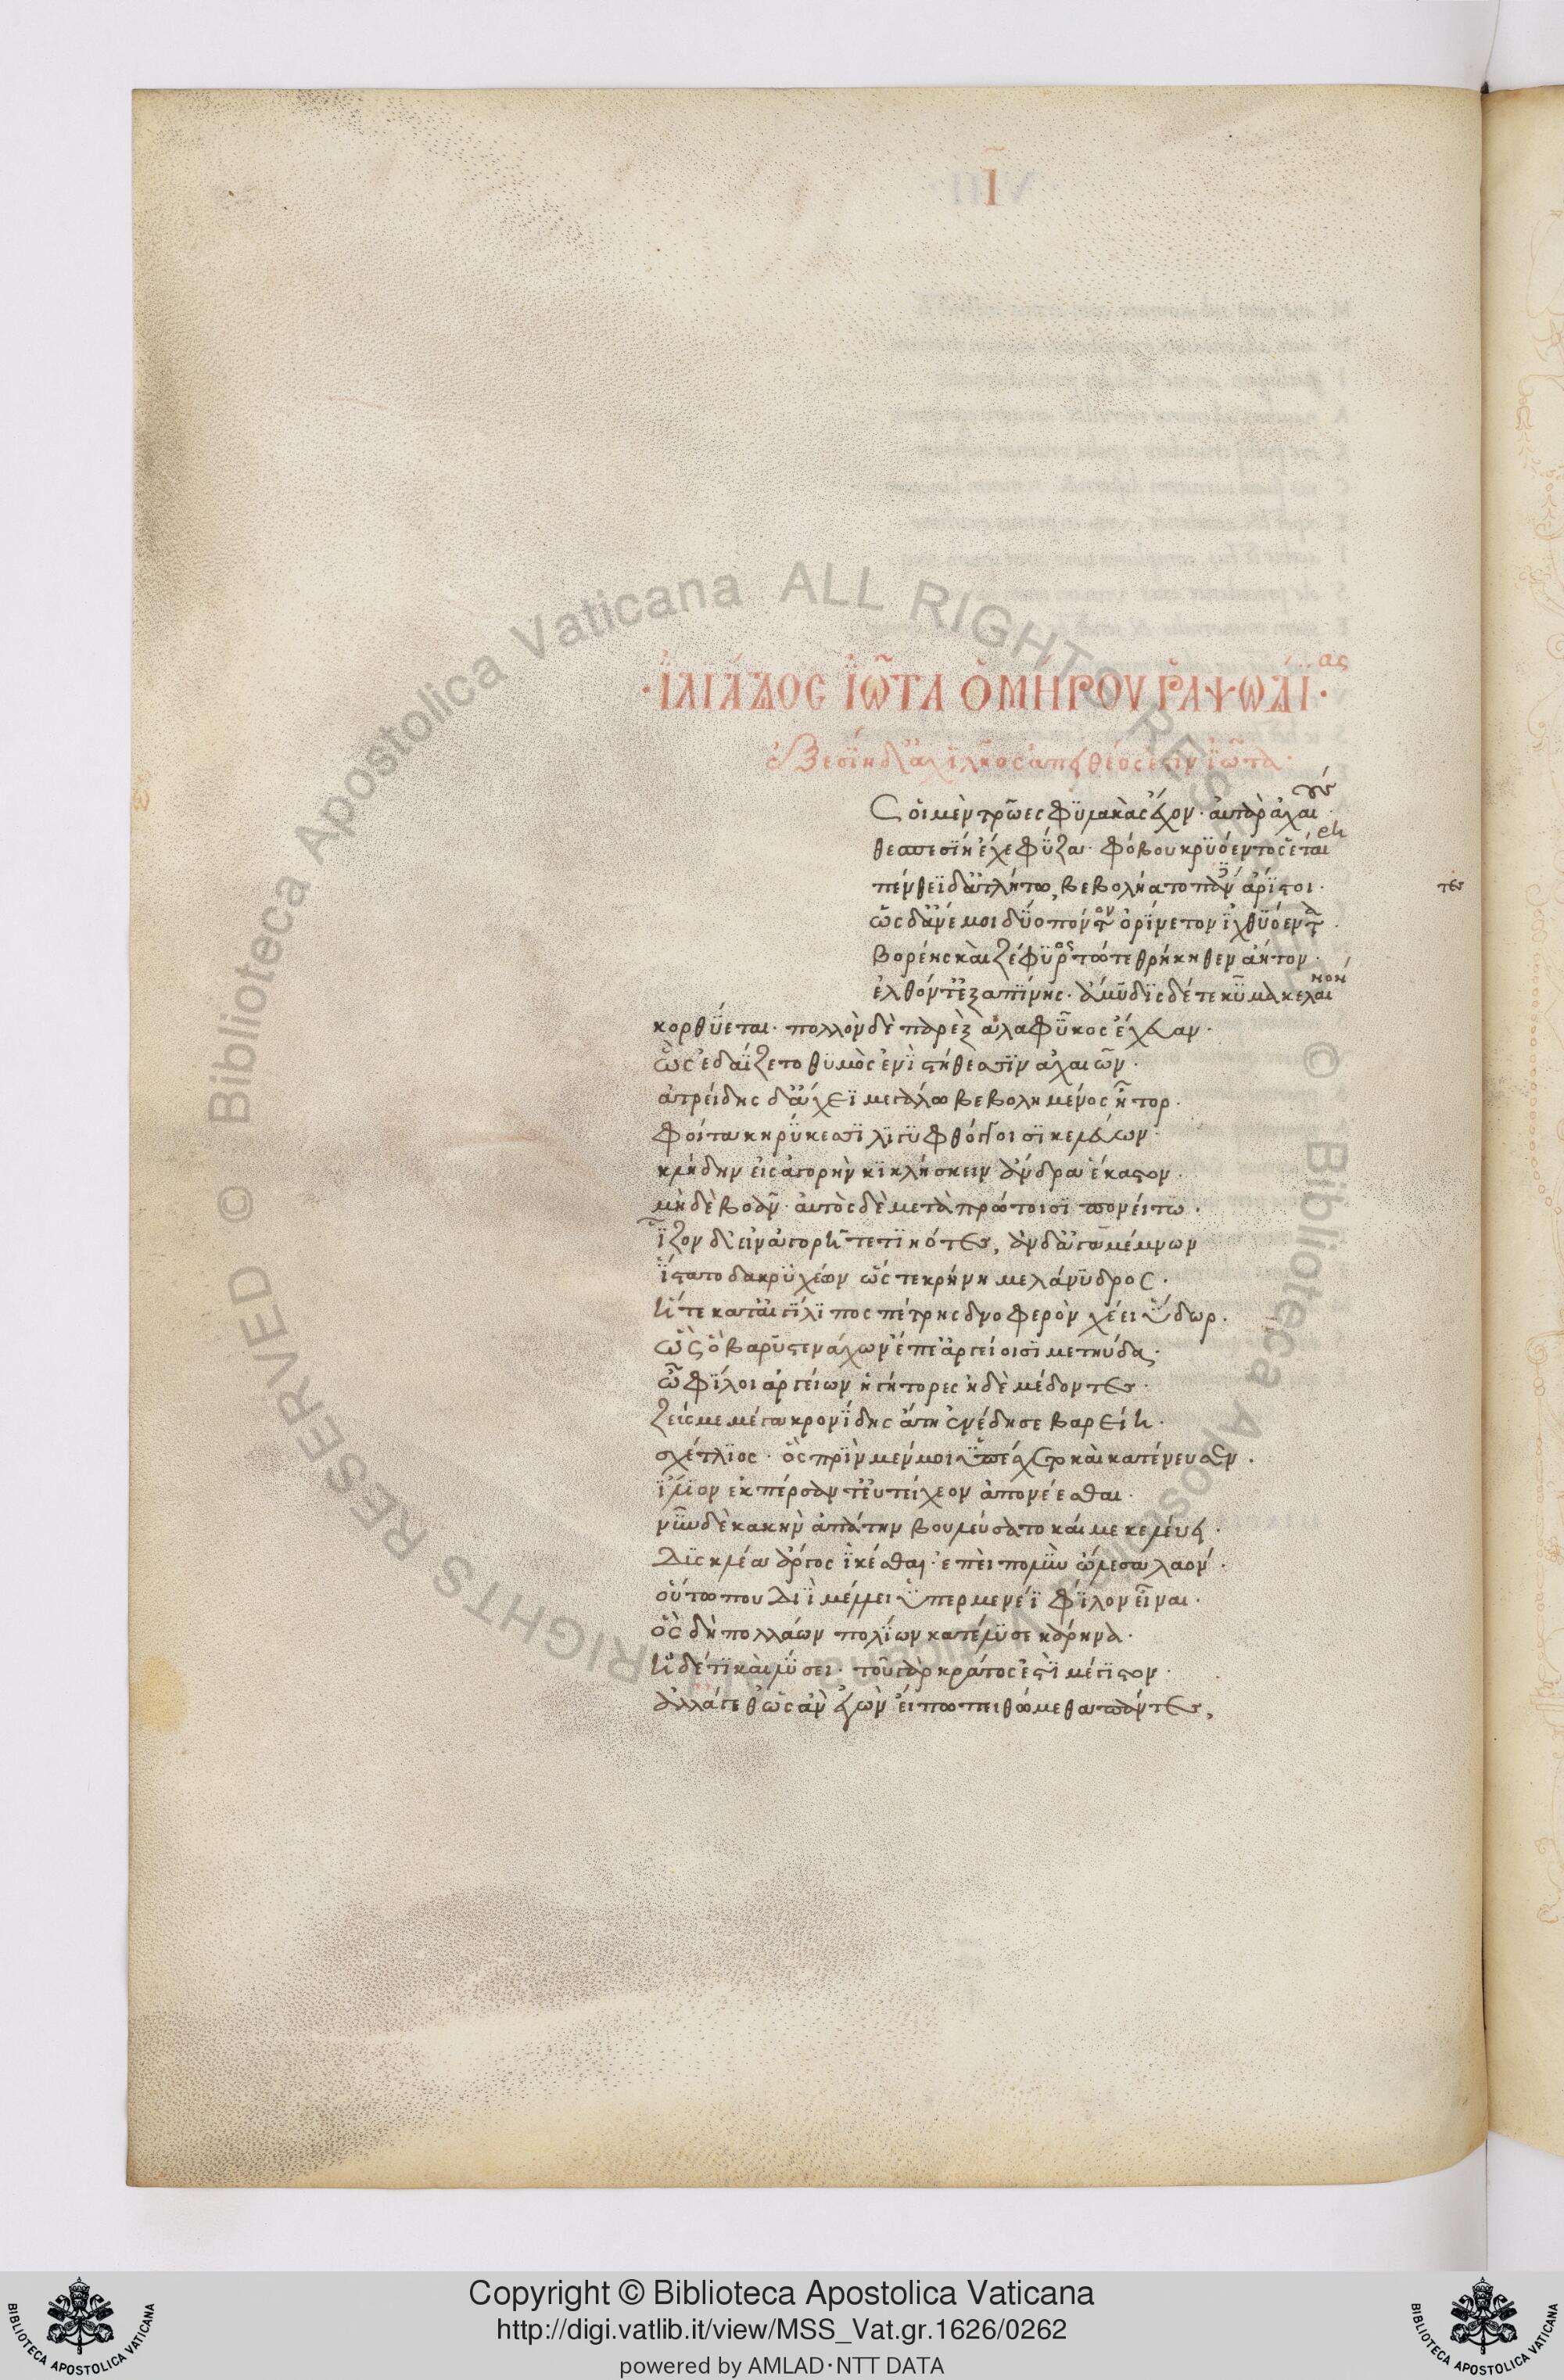 Ι
·ἸΛΙΆΔΟΣ ἸΩ͂ΤΑ ὉΜΉΡΟΥ ῬΑΨΩΔΊΑς·
ἐξεσίη δ' ἀχιλῆος ἀπειθέος ἐστὶν ἰῶτα·
ς οἱ μὲν τρῶες φϋλακὰς ἔχον· ἀυτὰρ ἀχαιούς
θεσπεσίη ἔχε φΰζα· φόβου κρυόεντος ἑταίρη
πένθεϊ δ' ἀτλήτω, βεβολήατο πάντες ἄριστοι·
ὡς δ' ἄνεμοι δύο πόντον ὀρίνετον ἰχθυόεντα·
βορέης καὶ ζέφυρος τώτε θρήκηθεν ἄητον·
ἐλθόντ' ἐξαπίνης· ἄμυδις δέ τε κῦμα κελαινόν
κορθύεται· πολλὸν δὲ παρὲξ ἅλα φῦκος ἔχευαν·
ὣς ἐδαΐζετο θυμὸς ἐνὶ στήθεσσιν ἀχαιῶν·
ἀτρείδης δ' ἄχεϊ μεγάλω βεβολημένος ἦτορ·
φοίτα κηρύκεσσι λιγυφθόγγοισι κελεύων·
κλήδην εἰς ἀγορὴν κικλήσκειν ἄνδρα ἕκαστον·
μὴ δὲ βοᾶν· ἀυτὸς δὲ μετὰ πρώτοισι πονεῖτο·
ἷζον δ' εἰν ἀγορῆ τετιηότες, ἂν δ' ἀγαμέμνων
ἵστατο δακρυχέων ὥς τε κρήνη μελάνυδρος·
ἥ τε κατ' αἰγίλιπος πέτρης δνοφερὸν χέει ὕδωρ·
ὣς ὁ βαρὺ στενάχων ἔπε' ἀργείοισι μετηύδα·
ὦ φίλοι ἀργείων ἡγήτορες ἠδὲ μέδοντες·
ζεύς με μέγα κρονίδης ἄτη ἐνέδησε βαρείη·
σχέτλιος· ὃς πρὶν μέν μοι ὑπέσχετο καὶ κατένευσεν·
ἴλιον ἐκπέρσαντ' ἐυτείχεον ἀπονέεσθαι·
νῦν δὲ κακὴν ἀπάτην βουλεύσατο καί με κελεύει·
δυσκλέα ἄργος ἱκέσθαι· ἐπεὶ πολὺν ὤλεσα λαόν·
οὕτω που Διῒ μέλλει ὑπερμενέϊ φίλον εἶναι·
ὃς δὴ πολλάων πολίων κατέλυσε κάρηνα·
ἠδ' ἔτι καὶ λύσει· τοῦ γὰρ κράτος ἐστὶ μέγιστον·
ἀλλ' ἄγεθ' ὡς ἂν ἐγὼν εἴπω πειθώμεθα πάντες,
Copyright © Biblioteca Apostolica Vaticana
http://digi.vatlib.it/view/MSS_Vat.gr.1626/0262
powered by AMLAD·NTT DATA